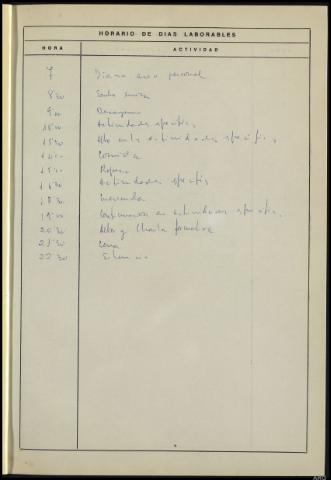 HORARIO DE DIAS LABORABLES
HORA ACTIVIDAD
7 Diana aseo personal
8'30 Santa misa
9'00 Desayuno
10'00 Actividades especificas
13'30 Alto en las actividades especificas
14'00 Comida
15'00 Reposo
16'30 Actividades especifs
18'30 Merienda
19'00 Continuacion en actividades especifs.
20'30 Aseo y Charla formativa
21'30 Cena
22'30 Silencio